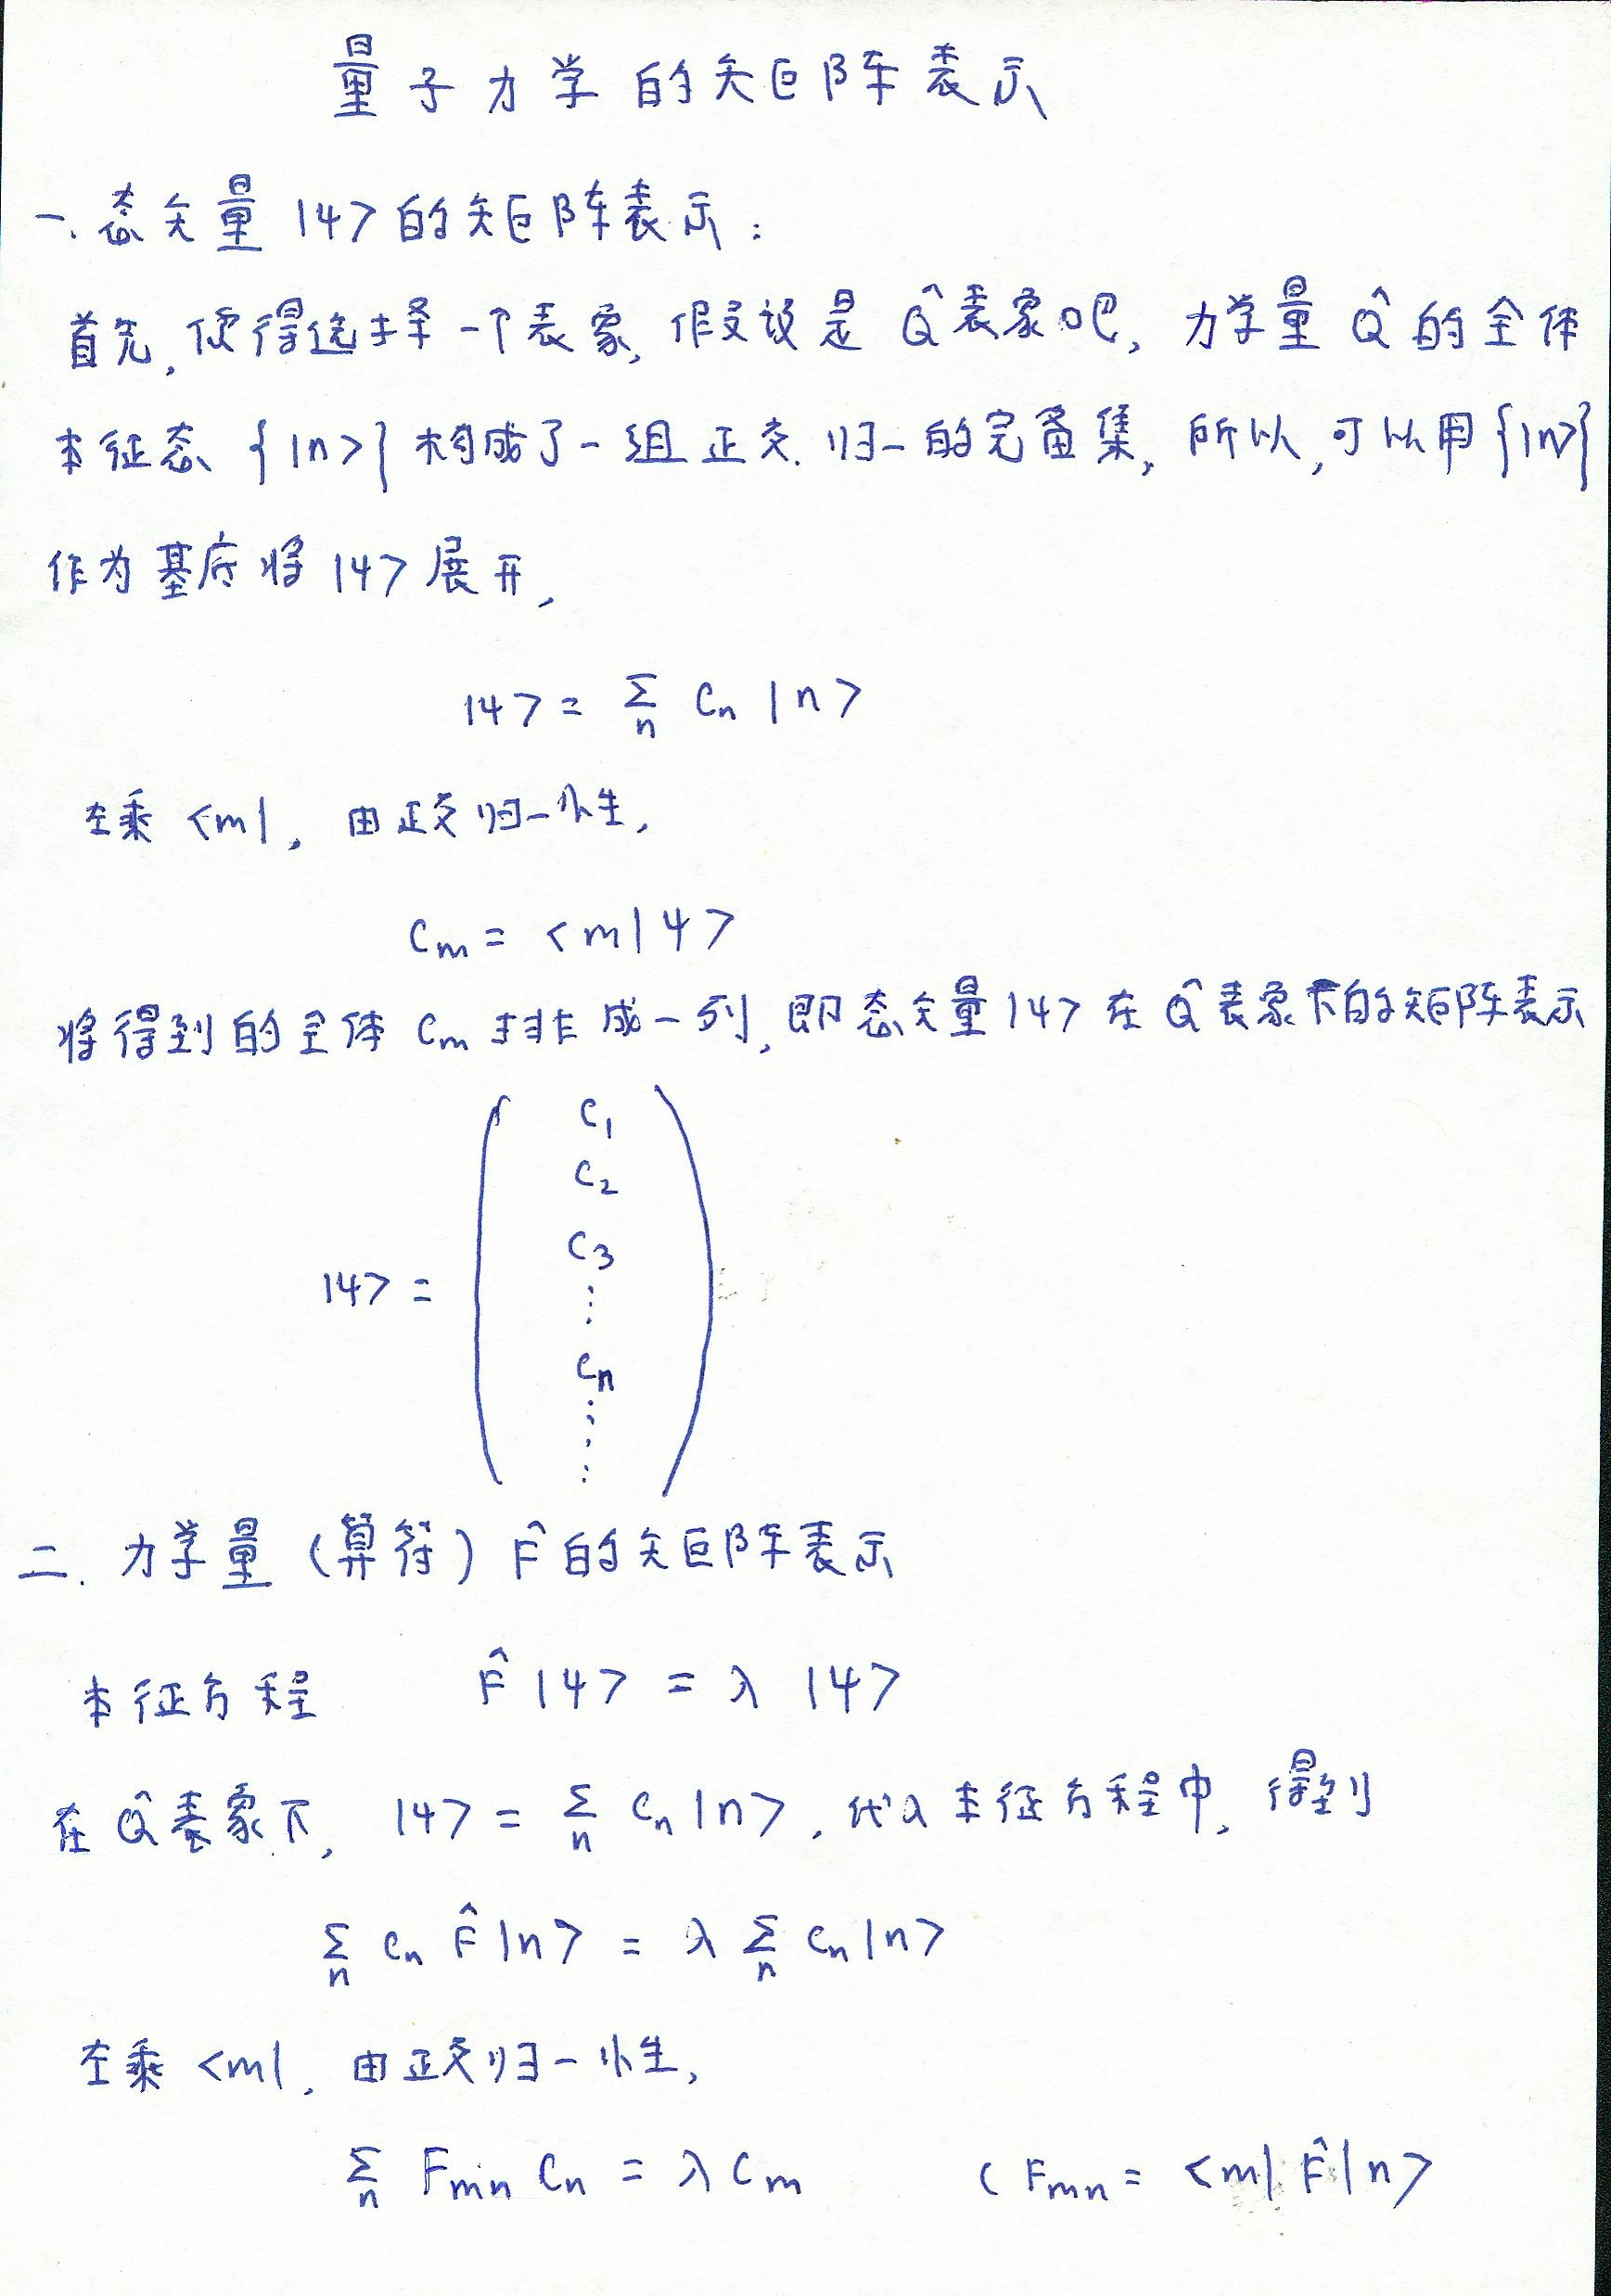 量子力学的矩阵表示
一、态矢量 |ψ> 的矩阵表示：
首先，你得选择一个表象，假设是 Q̂ 表象吧，力学量 Q̂ 的全体
本征态 {|n>} 构成了一组正交.归一的完备集，所以，可以用 {|n>}
作为基底将 |ψ> 展开，
|ψ> = Σ_n C_n |n>
左乘 <m|，由正交归一性，
C_m = <m|ψ>
将得到的全体 C_m 排成一列，即态矢量 |ψ> 在 Q̂ 表象下的矩阵表示
C_1
C_2
C_3
|ψ> =
⋮
C_n
⋮
二. 力学量（算符）F̂ 的矩阵表示
本征方程 F̂ |ψ> = λ |ψ>
在 Q̂ 表象下，|ψ> = Σ_n C_n |n>，代入本征方程中，得到
Σ_n C_n F̂ |n> = λ Σ_n C_n |n>
左乘 <m|，由正交归一性，
Σ_n F_mn C_n = λ C_m ( F_mn = <m| F̂ |n>